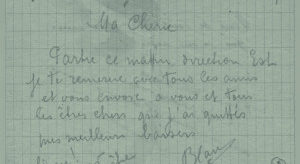 Ma Chérie
Partie ce matin direction Est
je te remercie avec tous les amis
et vous envoie a vous et tous
les êtres chers que j'ai quittés
mes meilleurs baisers